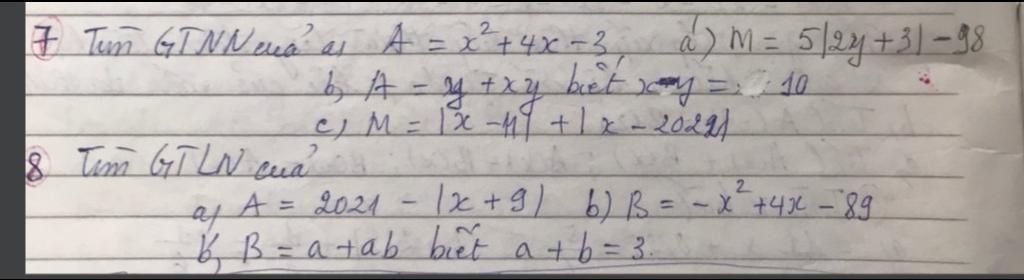 7 Tìm GTNN của a) A = x² + 4x - 3 a') M = 5|2y + 3| - 98
b) A = y + xy biết x - y = 10
c) M = |x - 11| + |x - 2022|
8 Tìm GTLN của
a) A = 2021 - |x + 9| b) B = -x² + 4x - 89
b') B = a + ab biết a + b = 3.